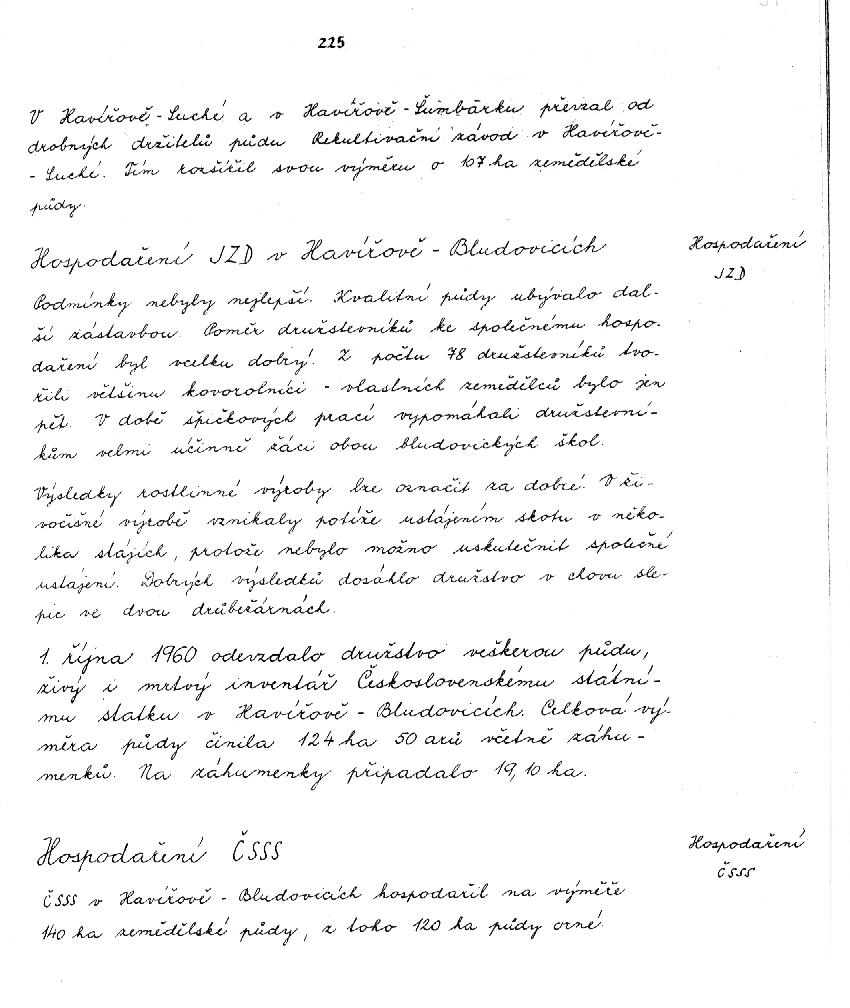 225
V Havířově-Suché a v Havířově-Šumbarku převzal od
drobných držitelů půdu Rekultivační závod v Havířově-
-Suché. Tím rozšířil svou výměru o 107 ha zemědělské
půdy.
Hospodaření JZD v Havířově - Bludovicích
Hospodaření
JZD
Podmínky nebyly nejlepší. Kvalitní půdy ubývalo dal-
ší zástavbou. Poměr družstevníků ke společnému hospo-
daření byl vcelku dobrý. Z počtu 78 družstevníků tvo-
řili většinu kovorolníci - vlastních zemědělců bylo jen
pět. V době špičkových prací vypomáhali družstevní-
kům velmi účinně žáci obou bludovických škol.
Výsledky rostlinné výroby lze označit za dobré. V ži-
vočišné výrobě vznikaly potíže ustájením skotu v něko-
lika stájích, protože nebylo možno uskutečnit společné
ustájení. Dobrých výsledků dosáhlo družstvo v chovu sle-
pic ve dvou drůbežárnách.
1. října 1960 odevzdalo družstvo veškerou půdu,
živý i mrtvý inventář Československému státní-
mu statku v Havířově - Bludovicích. Celková vý-
měra půdy činila 124 ha 50 arů včetně záhu-
menků. Na záhumenky připadalo 19,10 ha.
Hospodaření ČSSS
Hospodaření
ČSSS
ČSSS v Havířově - Bludovicích hospodařil na výměře
140 ha zemědělské půdy, z toho 120 ha půdy orné.